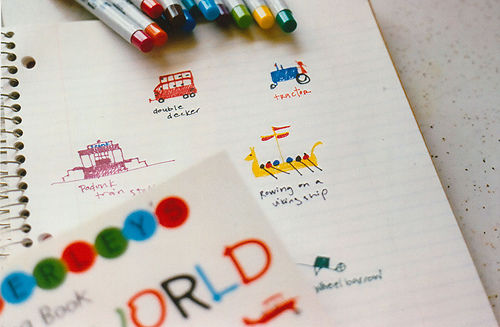 double
decker
tractor
Podunk
train
Rowing on a
viking ship
wheelbarrow
ERLEY'S
Book
WORLD